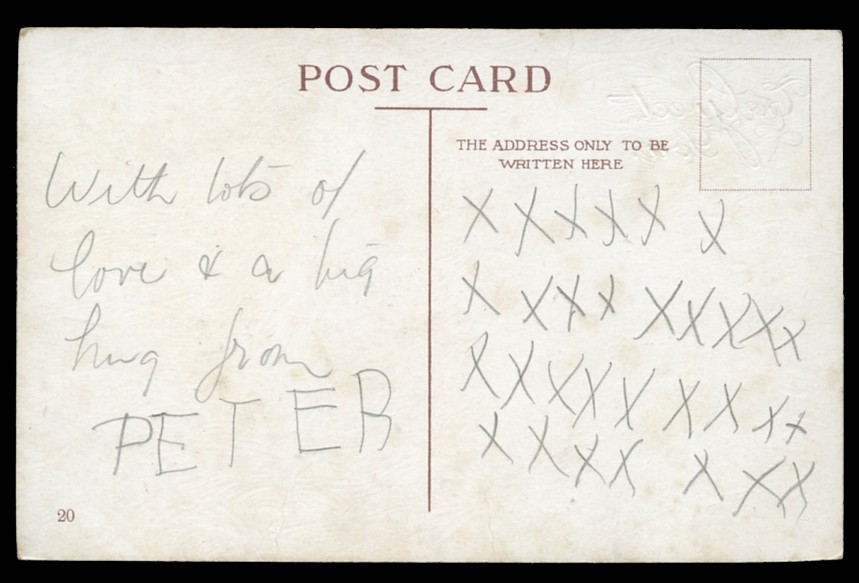 POST CARD
With lots of
love & a big
hug from
PETER
20
THE ADDRESS ONLY TO BE
WRITTEN HERE
XXXXX X
X XXX XXXXX
XXXXX XX XX
X X XX X XX